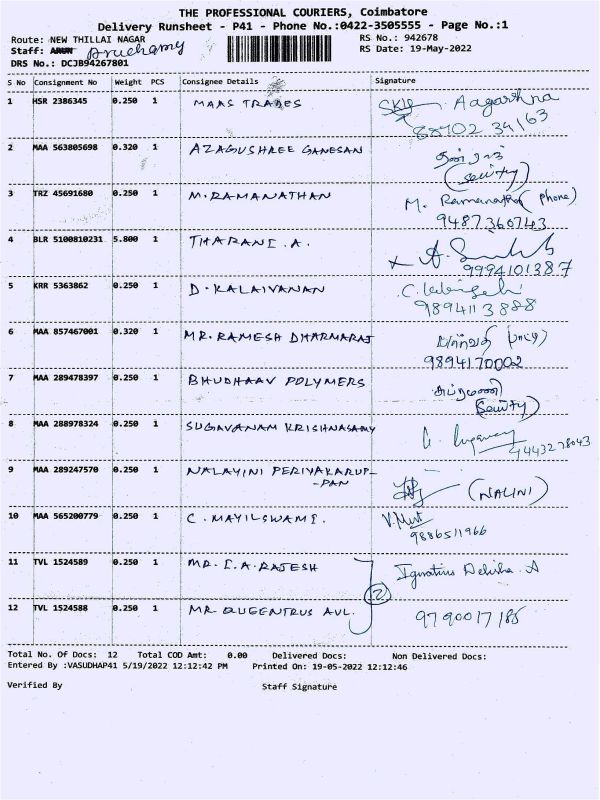 THE PROFESSIONAL COURIERS, Coimbatore
Delivery Runsheet - P41 - Phone No.:0422-3505555 - Page No.:1
Route: NEW THILLAI NAGAR RS No.: 942678
Staff: ARUN Aruchamy RS Date: 19-May-2022
DRS No.: DCJB94267801
S No Consignment No Weight PCS Consignee Details Signature
1 HSR 2386345 0.250 1 MAAS TRADES
2 MAA 563805698 0.320 1 AZAGUSHREE GANESAN
(Security)
3 TRZ 45691680 0.250 1 M.RAMANATHAN M. Ramanathan (phone)
9487360743
4 BLR 5100810231 5.800 1 THARANI.A.
9994101387
5 KRR 5363862 0.250 1 D.KALAIVANAN
9894113888
6 MAA 857467001 0.320 1 MR.RAMESH DHARMARAJ
9894170002
7 MAA 289478397 0.250 1 BHUDHAAV POLYMERS
(Security)
8 MAA 288978324 0.250 1 SUGAVANAM KRISHNASAMY
9443278043
9 MAA 289247570 0.250 1 NALAYINI PERIYAKARUP-
-PAN (NALINI)
10 MAA 565200779 0.250 1 C.MAYILSWAMI.
9886511966
11 TVL 1524589 0.250 1 MR.I.A.RAJESH Ignatius A
2
12 TVL 1524588 0.250 1 MR AVL. 9790017185
Total No. Of Docs: 12 Total COD Amt: 0.00 Delivered Docs: Non Delivered Docs:
Entered By :VASUDHAP41 5/19/2022 12:12:42 PM Printed On: 19-05-2022 12:12:46
Verified By Staff Signature